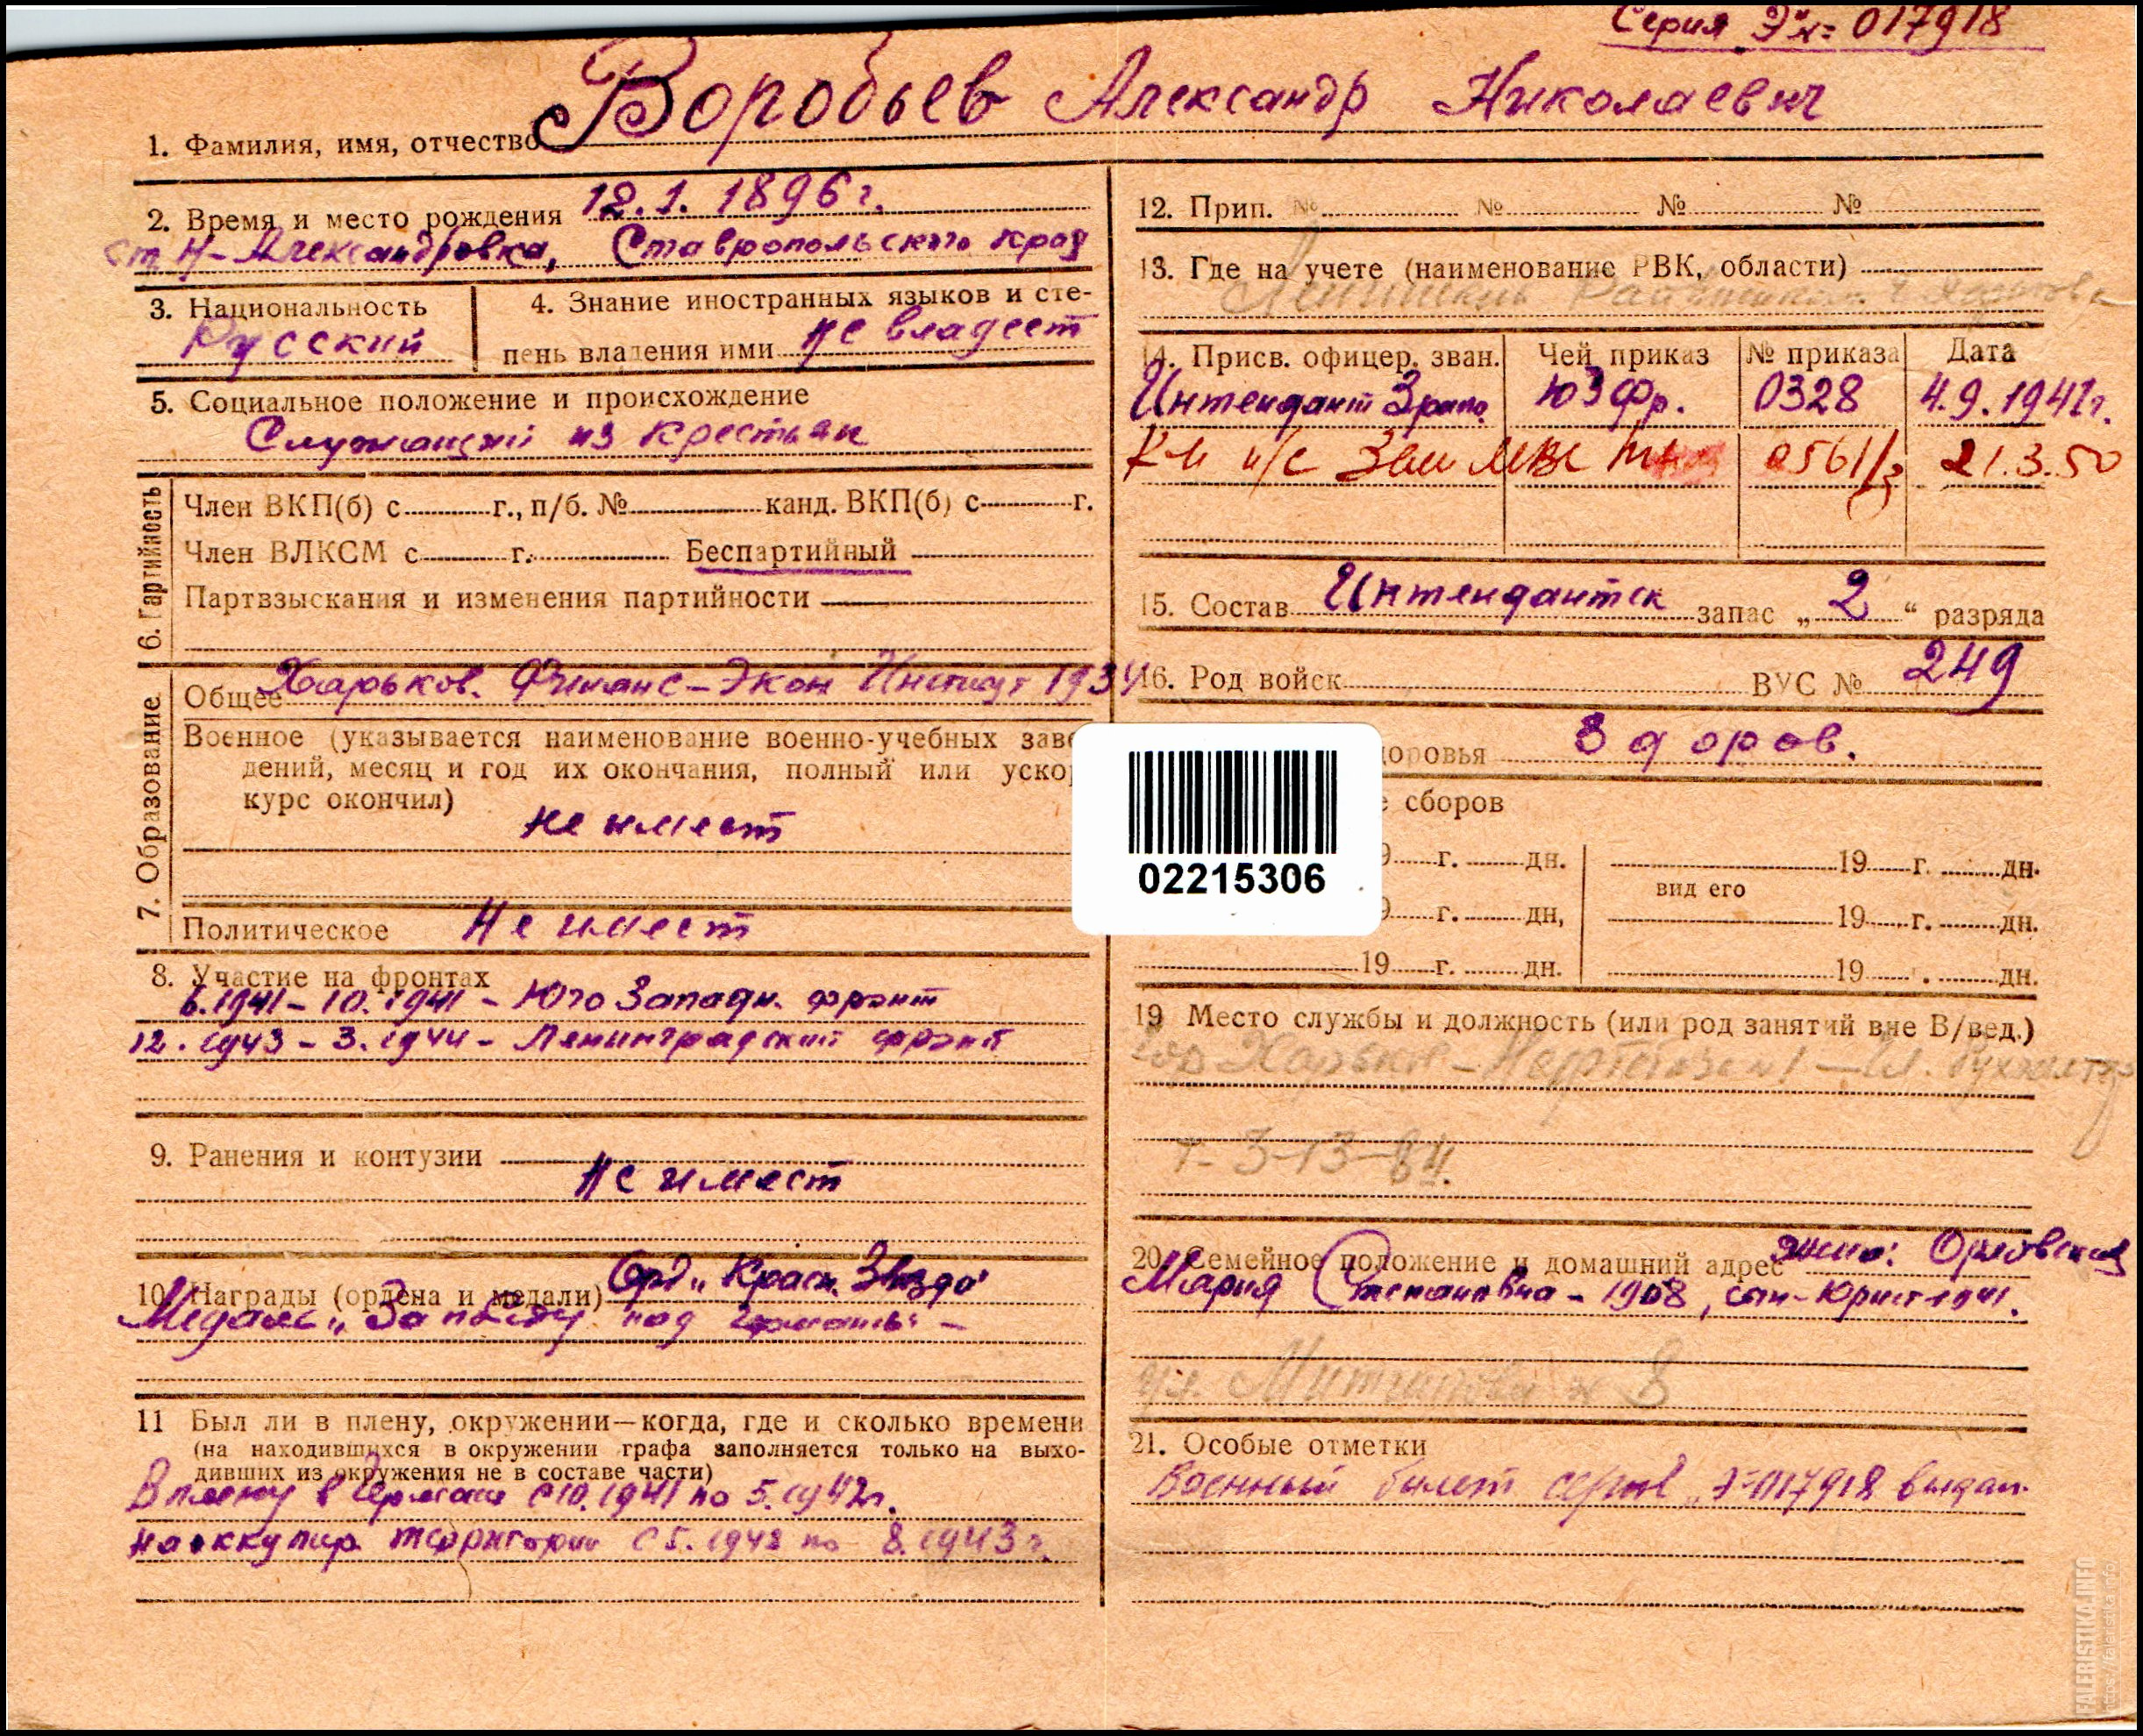 Серия Э № 017918
1. Фамилия, имя, отчество Воробьев Александр Николаевич
2. Время и место рождения 12.1.1896 г.
ст. Н-Александровка, Ставропольского края
3. Национальность
Русский
4. Знание иностранных языков и сте-
пень владения ими не владеет
5. Социальное положение и происхождение
Служащий из крестьян
6. Партийность
Член ВКП(б) с г., п/б. № канд. ВКП(б) с г.
Член ВЛКСМ с г. Беспартийный
Партвзыскания и изменения партийности
7. Образование
Общее Харьков. Финанс-Экон Институт 1934
Военное (указывается наименование военно-учебных заве
дений, месяц и год их окончания, полный или уско
курс окончил)
не имеет
Политическое Не имеет
8. Участие на фронтах
6.1941 – 10.1941 – Юго Западн. фронт
12.1943 – 3.1944 – Ленинградский фронт
9. Ранения и контузии
Не имеет
10. Награды (ордена и медали) Орд „Красн. Звезда"
Медаль „За победу над Германией" –
11 Был ли в плену, окружении—когда, где и сколько времени
(на находившихся в окружении графа заполняется только на выхо-
дивших из окружения не в составе части)
В плену в Германии с 10.1941 по 5.1942 г.
на оккупир. территории с 5.1942 по 8.1943 г.
12. Прип. № № № №
13. Где на учете (наименование РВК, области)
14. Присв. офицер. зван. Чей приказ № приказа Дата
Интендант 3 ранга ЮЗ Фр. 0328 4.9.1941 г.
К-н и/с 0561/3 21.3.50
15. Состав Интендантск запас „ 2 “ разряда
16. Род войск ВУС № 249
доровья Здоров.
е сборов
02215306
9 г. дн. 19 г. дн.
вид его
9 г. дн, 19 г. дн.
19 г. дн. 19 . дн.
19 Место службы и должность (или род занятий вне В/вед.)
гор Харьков – – Гл. бухгалтер
т. 3-13-84.
20. Семейное положение и домашний адрес жена: Орловская
Мария Степановна – 1908, сын – Юрий – 1941.
ул. № 8
21. Особые отметки
Военный билет серия „Э-017918 выдан.
FALERISTIKA.INFO
https://faleristika.info